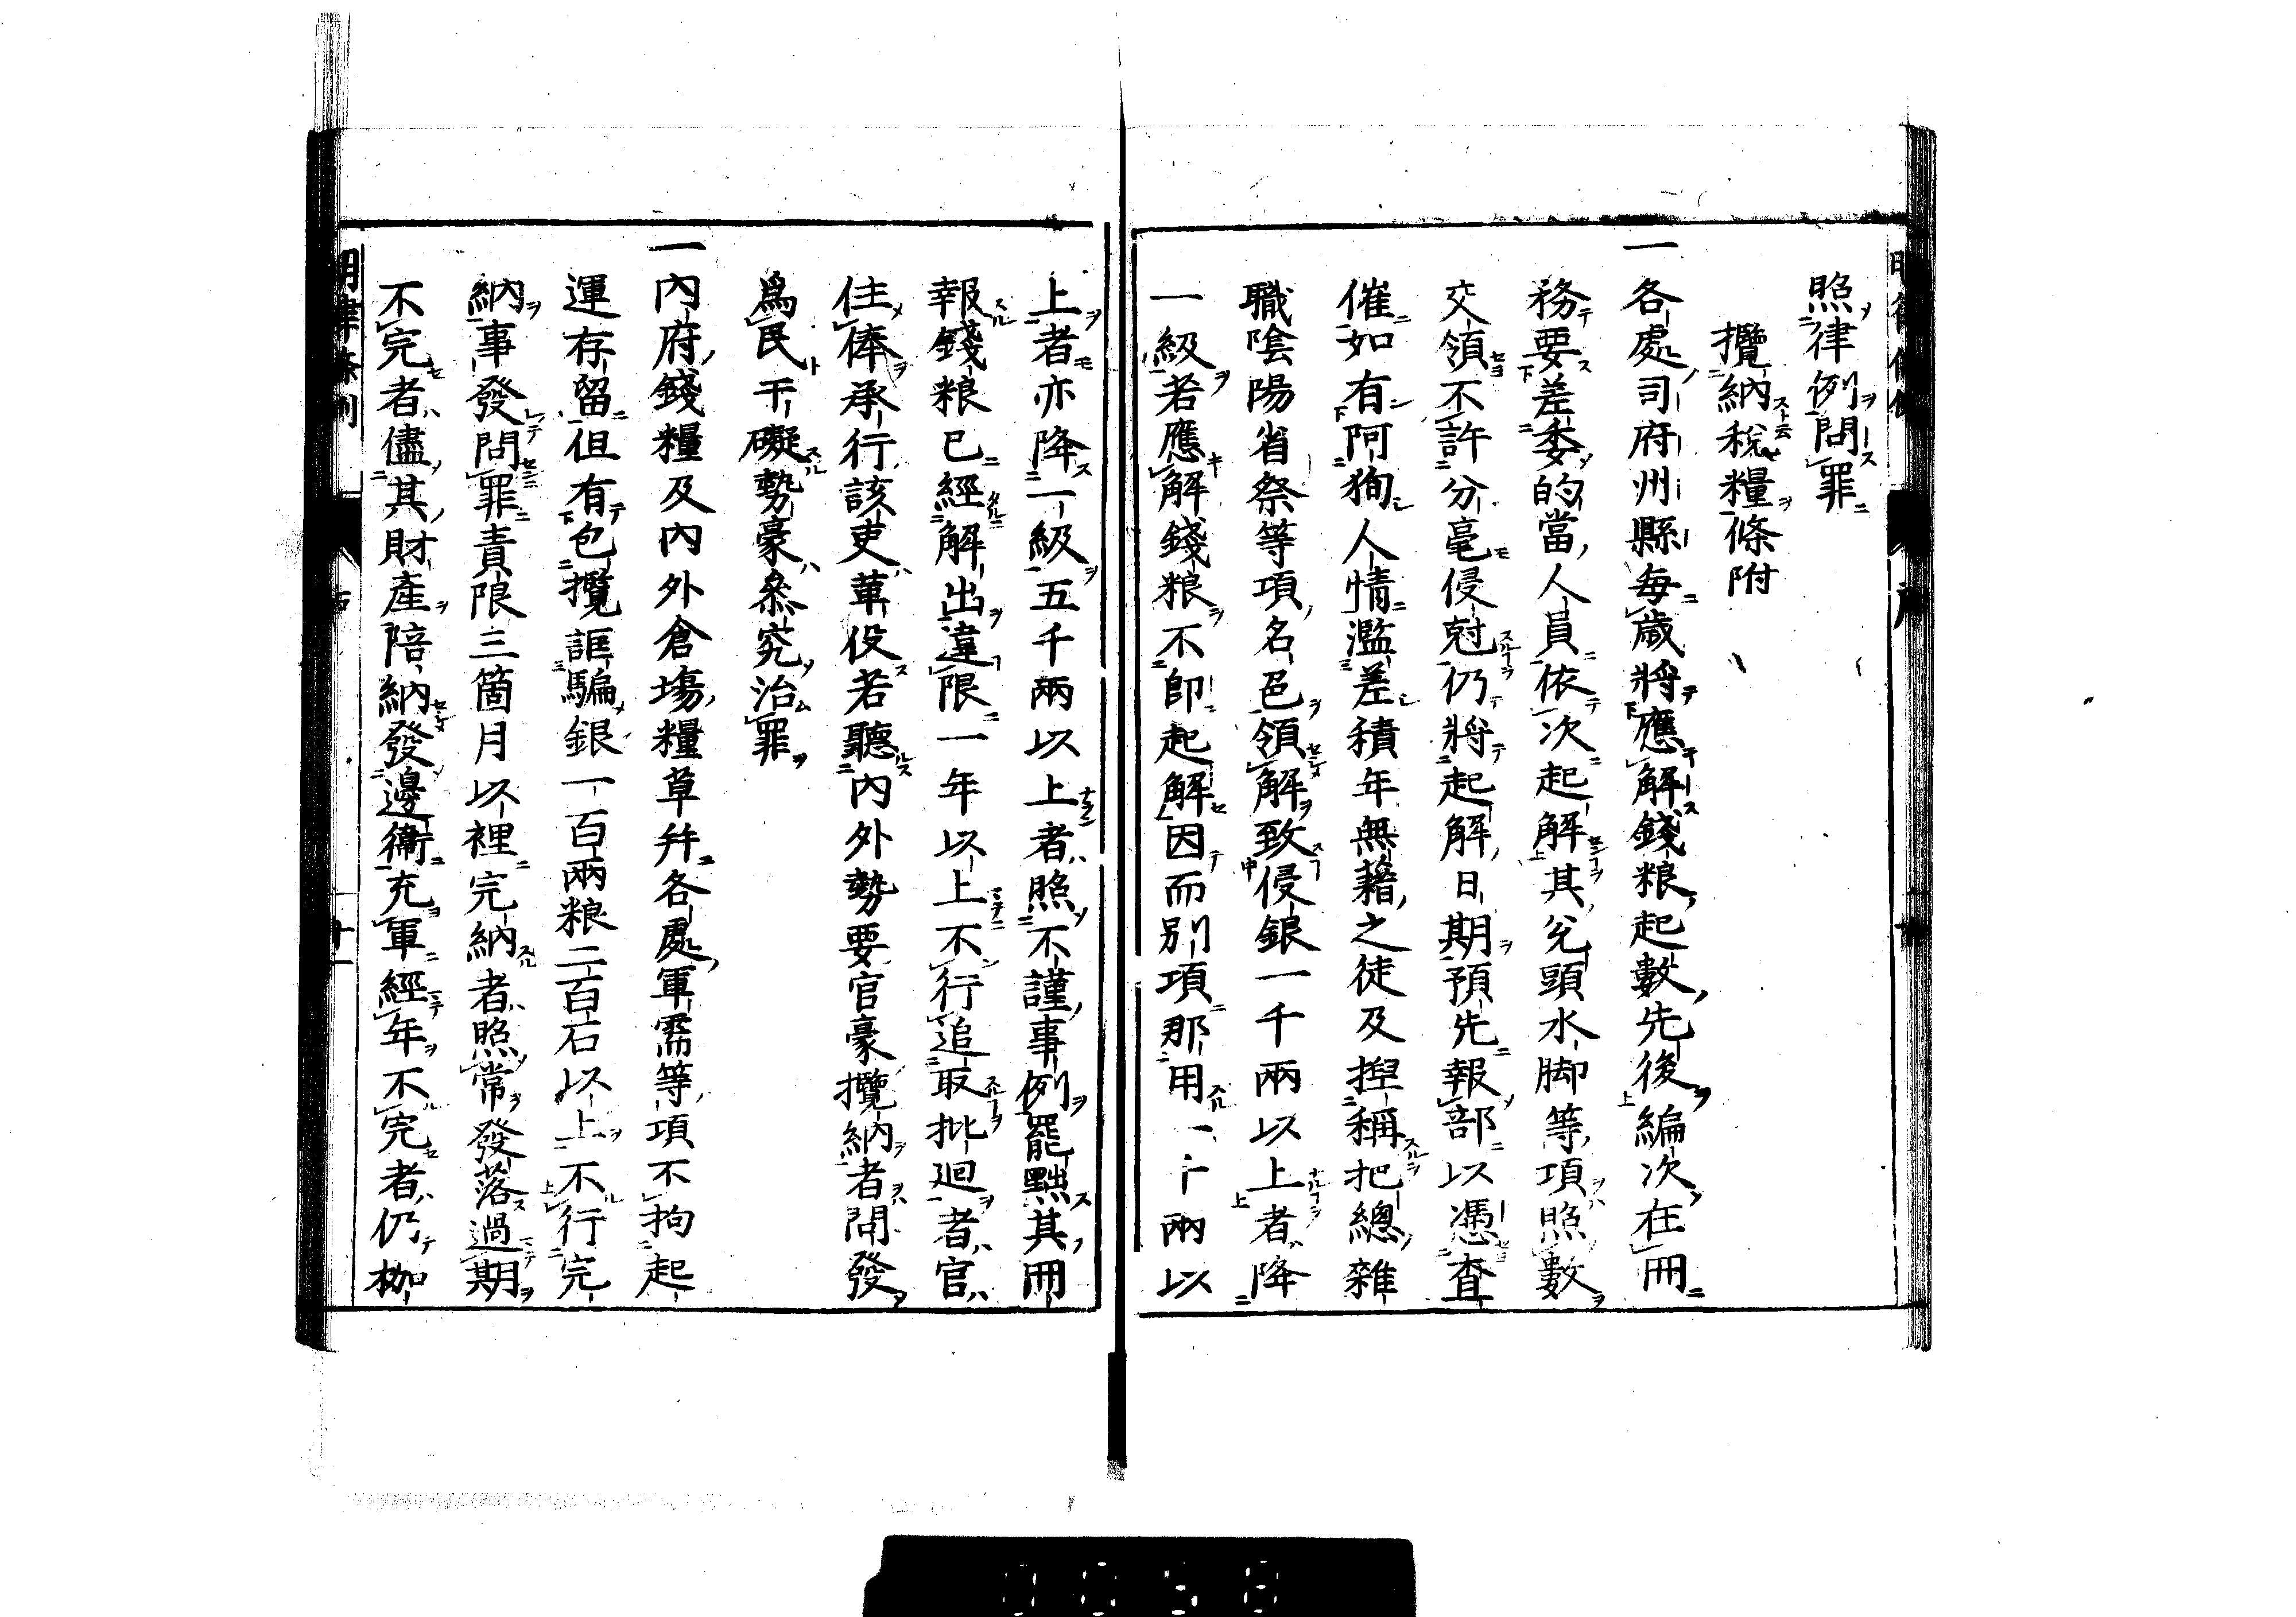 照律例問罪
攬納稅糧條附
一各處司府州縣每歲將應解錢粮起數先後編次在冊
務要差委的當人員依次起解其兊頭水脚等項照數
交領不許分毫侵尅仍將起解日期預先報部以憑查
催如有阿狥人情濫差積年無藉之徒及揑稱把總雜
職陰陽省祭等項名色領解致侵銀一千兩以上者降
一級若應解錢粮不卽起解因而別項那用一千兩以
上者亦降一級五千兩以上者照不謹事例罷黜其冊
報錢粮已經解出違限一年以上不行追取批迴者官
住俸承行該吏革役若聽內外勢要官豪攬納者問發
爲民干礙勢豪叅究治罪
一內府錢糧及內外倉塲糧草幷各處軍需等項不拘起
運存留但有包攬誆騙銀一百兩粮二百石以上不行完
納事發問罪責限三箇月以裡完納者照常發落過期
不完者儘其財產陪納發邊衞充軍經年不完者仍枷
明律條例
十一